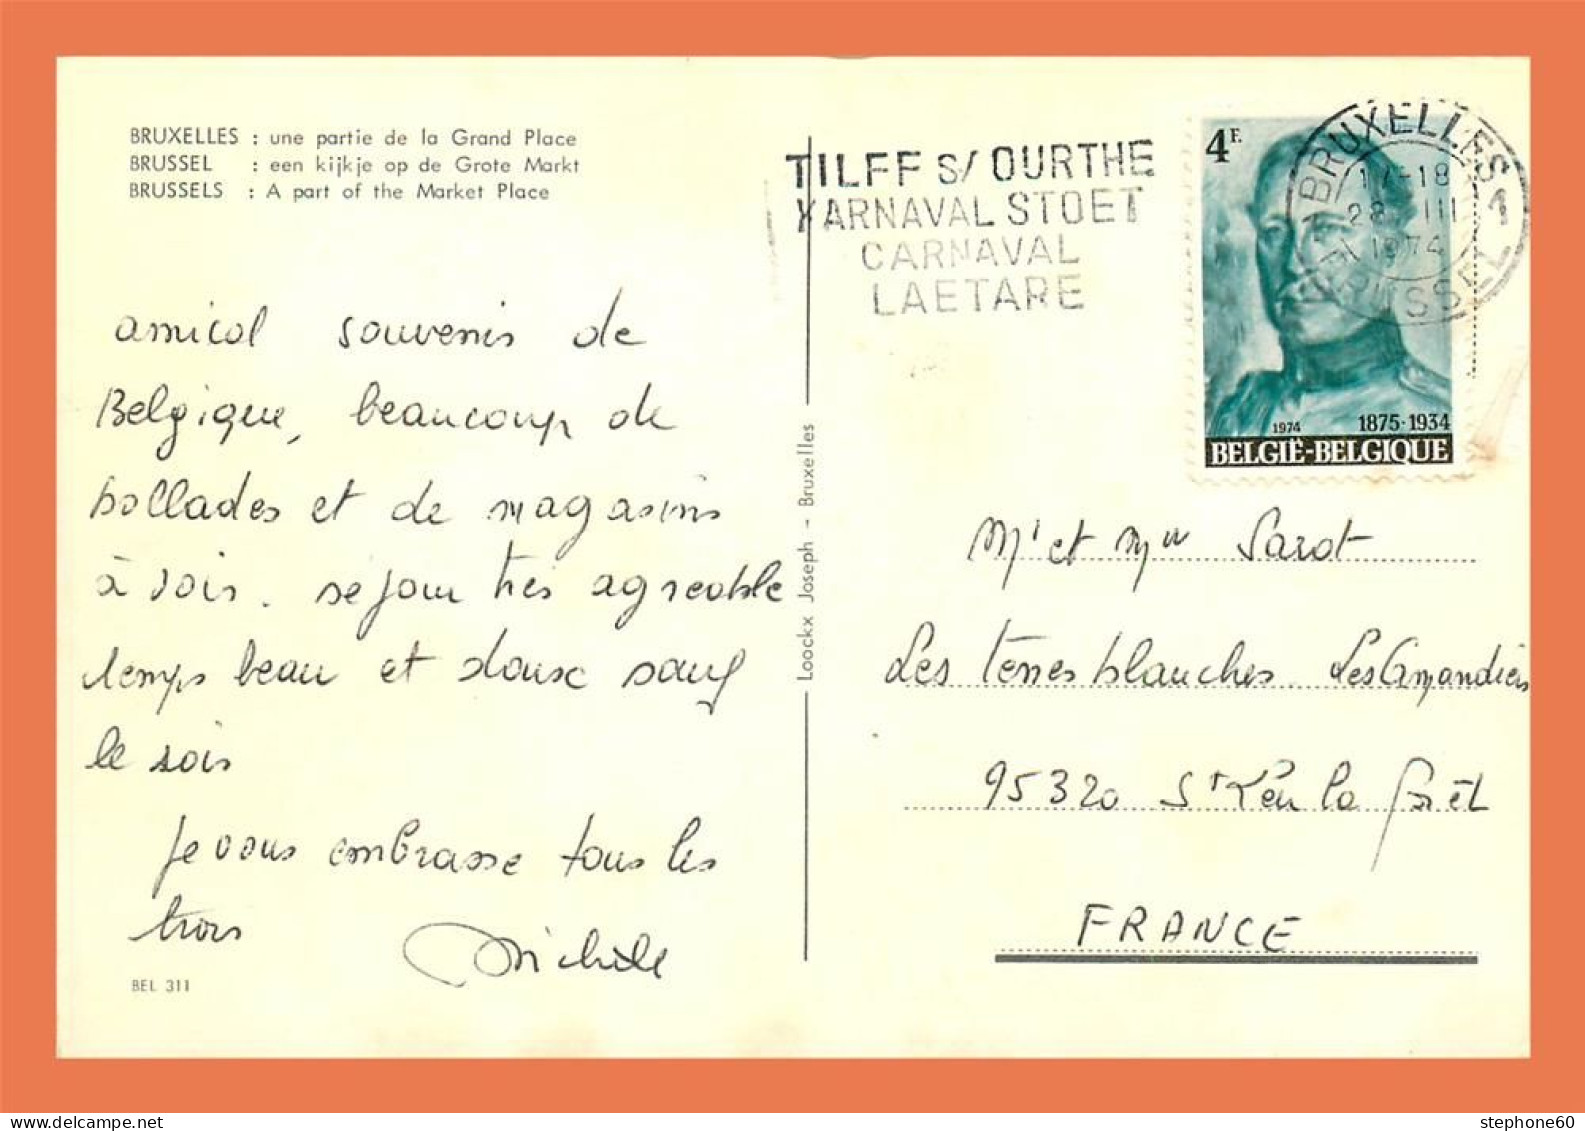 BRUXELLES : une partie de la Grand Place
BRUSSEL : een kijkje op de Grote Markt
BRUSSELS : A part of the Market Place
amical souvenir de
Belgique, beaucoup de
ballades et de magasins
à voir. séjour très agréable
temps beau et doux sauf
le soir
Je vous embrasse tous les
trois
Michèle
BEL 311
Loockx Joseph - Bruxelles
TILFF S/ OURTHE
KARNAVAL STOET
CARNAVAL
LAETARE
4F.
BRUXELLES 1
17-18
28 III
1974
BRUSSEL
1974 1875-1934
BELGIË-BELGIQUE
Mr et Mme Sarot
Les terres blanches Les Amandiers
95320 St Leu la forêt
FRANCE
stephone60